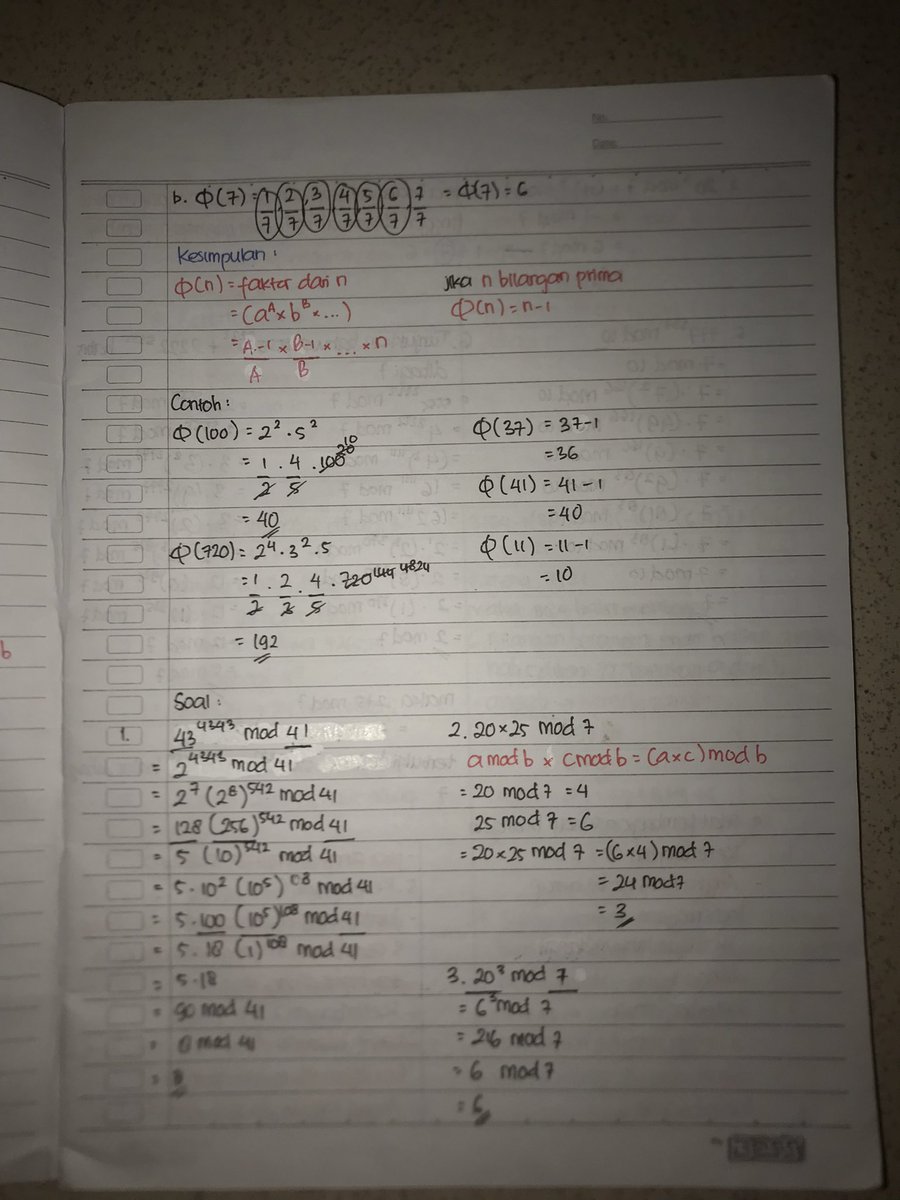 No.
Date:
b. Φ(7) = 1/7 2/7 3/7 4/7 5/7 6/7 7/7 = Φ(7) = 6
Kesimpulan :
Φ(n) = faktor dari n
= (a^A × b^B × ...)
= A-1/A × B-1/B × ... × n
jika n bilangan prima
Φ(n) = n-1
Contoh :
Φ(100) = 2² · 5²
= 1/2 · 4/5 · 100 20 10
= 40
Φ(720) = 2⁴ · 3² · 5
= 1/2 · 2/3 · 4/5 · 720 144 48 24
= 192
Φ(37) = 37-1
= 36
Φ(41) = 41-1
= 40
Φ(11) = 11-1
= 10
Soal :
1. 43^4343 mod 41
= 2^4343 mod 41
= 2⁷ (2⁸)^542 mod 41
= 128 (256)^542 mod 41
= 5 (10)^542 mod 41
= 5 · 10² (10⁵)^108 mod 41
= 5 · 100 (10⁵)^108 mod 41
= 5 · 18 (1)^108 mod 41
= 5 · 18
= 90 mod 41
= 8 mod 41
= 8
2. 20 × 25 mod 7
a mod b × c mod b = (a × c) mod b
= 20 mod 7 = 4
25 mod 7 = 6
= 20 × 25 mod 7 = (6 × 4) mod 7
= 24 mod 7
= 3
3. 20³ mod 7
= 6³ mod 7
= 216 mod 7
= 6 mod 7
= 6
b